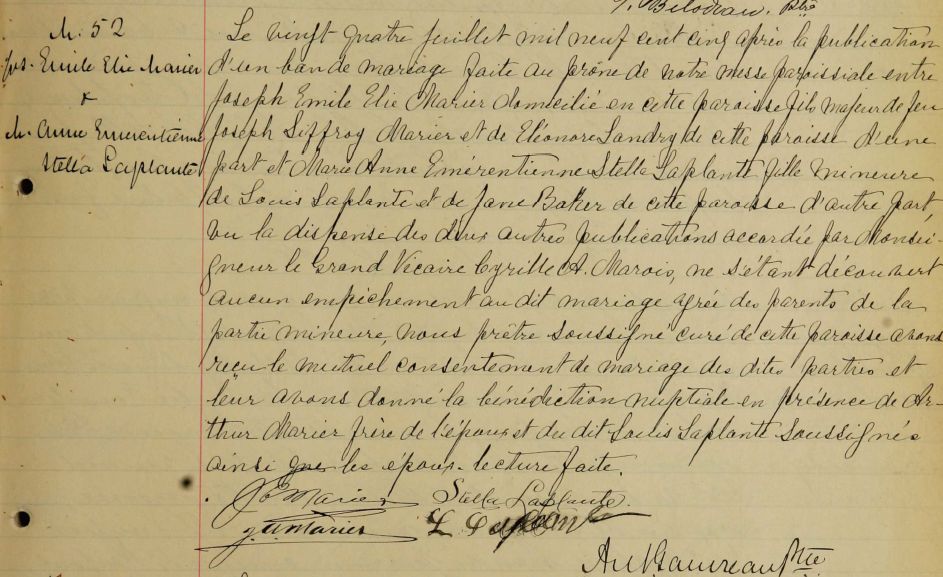 J. Bilodeau. Ptre
M. 52
Jos. Emile Elie Marier
&
M. Anne Emérentienne
Stella Laplante
Le vingt quatre juillet mil neuf cent cinq après la publication
d'un ban de mariage faite au prône de notre messe paroissiale entre
Joseph Emile Elie Marier domicilié en cette paroisse fils majeur de feu
Joseph Siffroy Marier et de Eléonore Landry de cette paroisse d'une
part et Marie Anne Emérentienne Stella Laplante fille mineure
de Louis Laplante et de Jane Baker de cette paroisse d'autre part,
vu la dispense des deux autres publications accordée par Monsei-
gneur le Grand Vicaire Cyrille A. Marois, ne s'étant découvert
aucun empêchement au dit mariage agrée des parents de la
partie mineure, nous prêtre soussigné curé de cette paroisse avons
reçu le mutuel consentement de mariage des dites parties et
leur avons donné la bénédiction nuptiale en présence de Ar-
thur Marier frère de l'époux et du dit Louis Laplante soussignés
ainsi que les époux. lecture faite.
J E Marier Stella Laplante
Marier L Laplante
Ptre